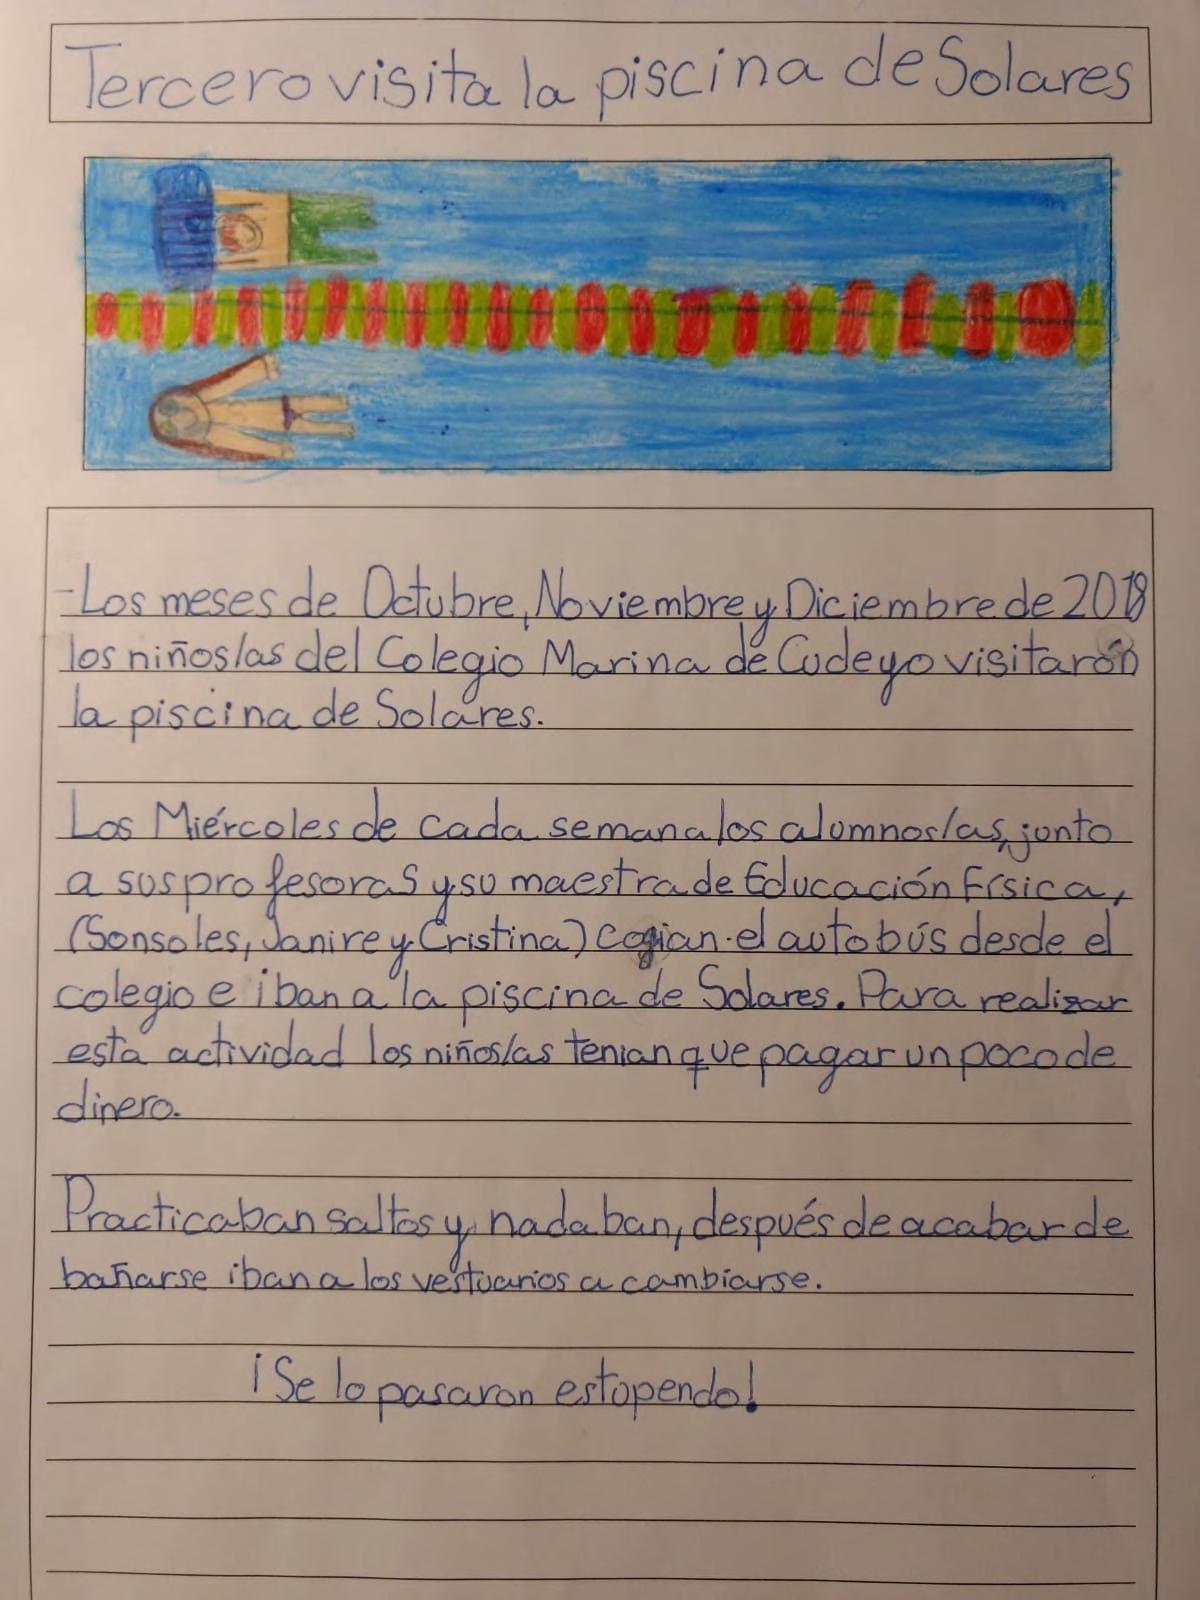 Tercero visita la piscina de Solares
-Los meses de Octubre, Noviembre y Diciembre de 2018
los niños/as del Colegio Marina de Cudeyo visitarón
la piscina de Solares.
Los Miércoles de cada semana los alumnos/as, junto
a sus profesoras y su maestra de Educación Física,
(Sonsoles, Janire y Cristina) cogian el autobús desde el
colegio e iban a la piscina de Solares. Para realizar
esta actividad los niños/as tenian que pagar un poco de
dinero.
Practicaban saltos y nadaban, después de acabar de
bañarse iban a los vestuarios a cambiarse.
¡Se lo pasaron estupendo!